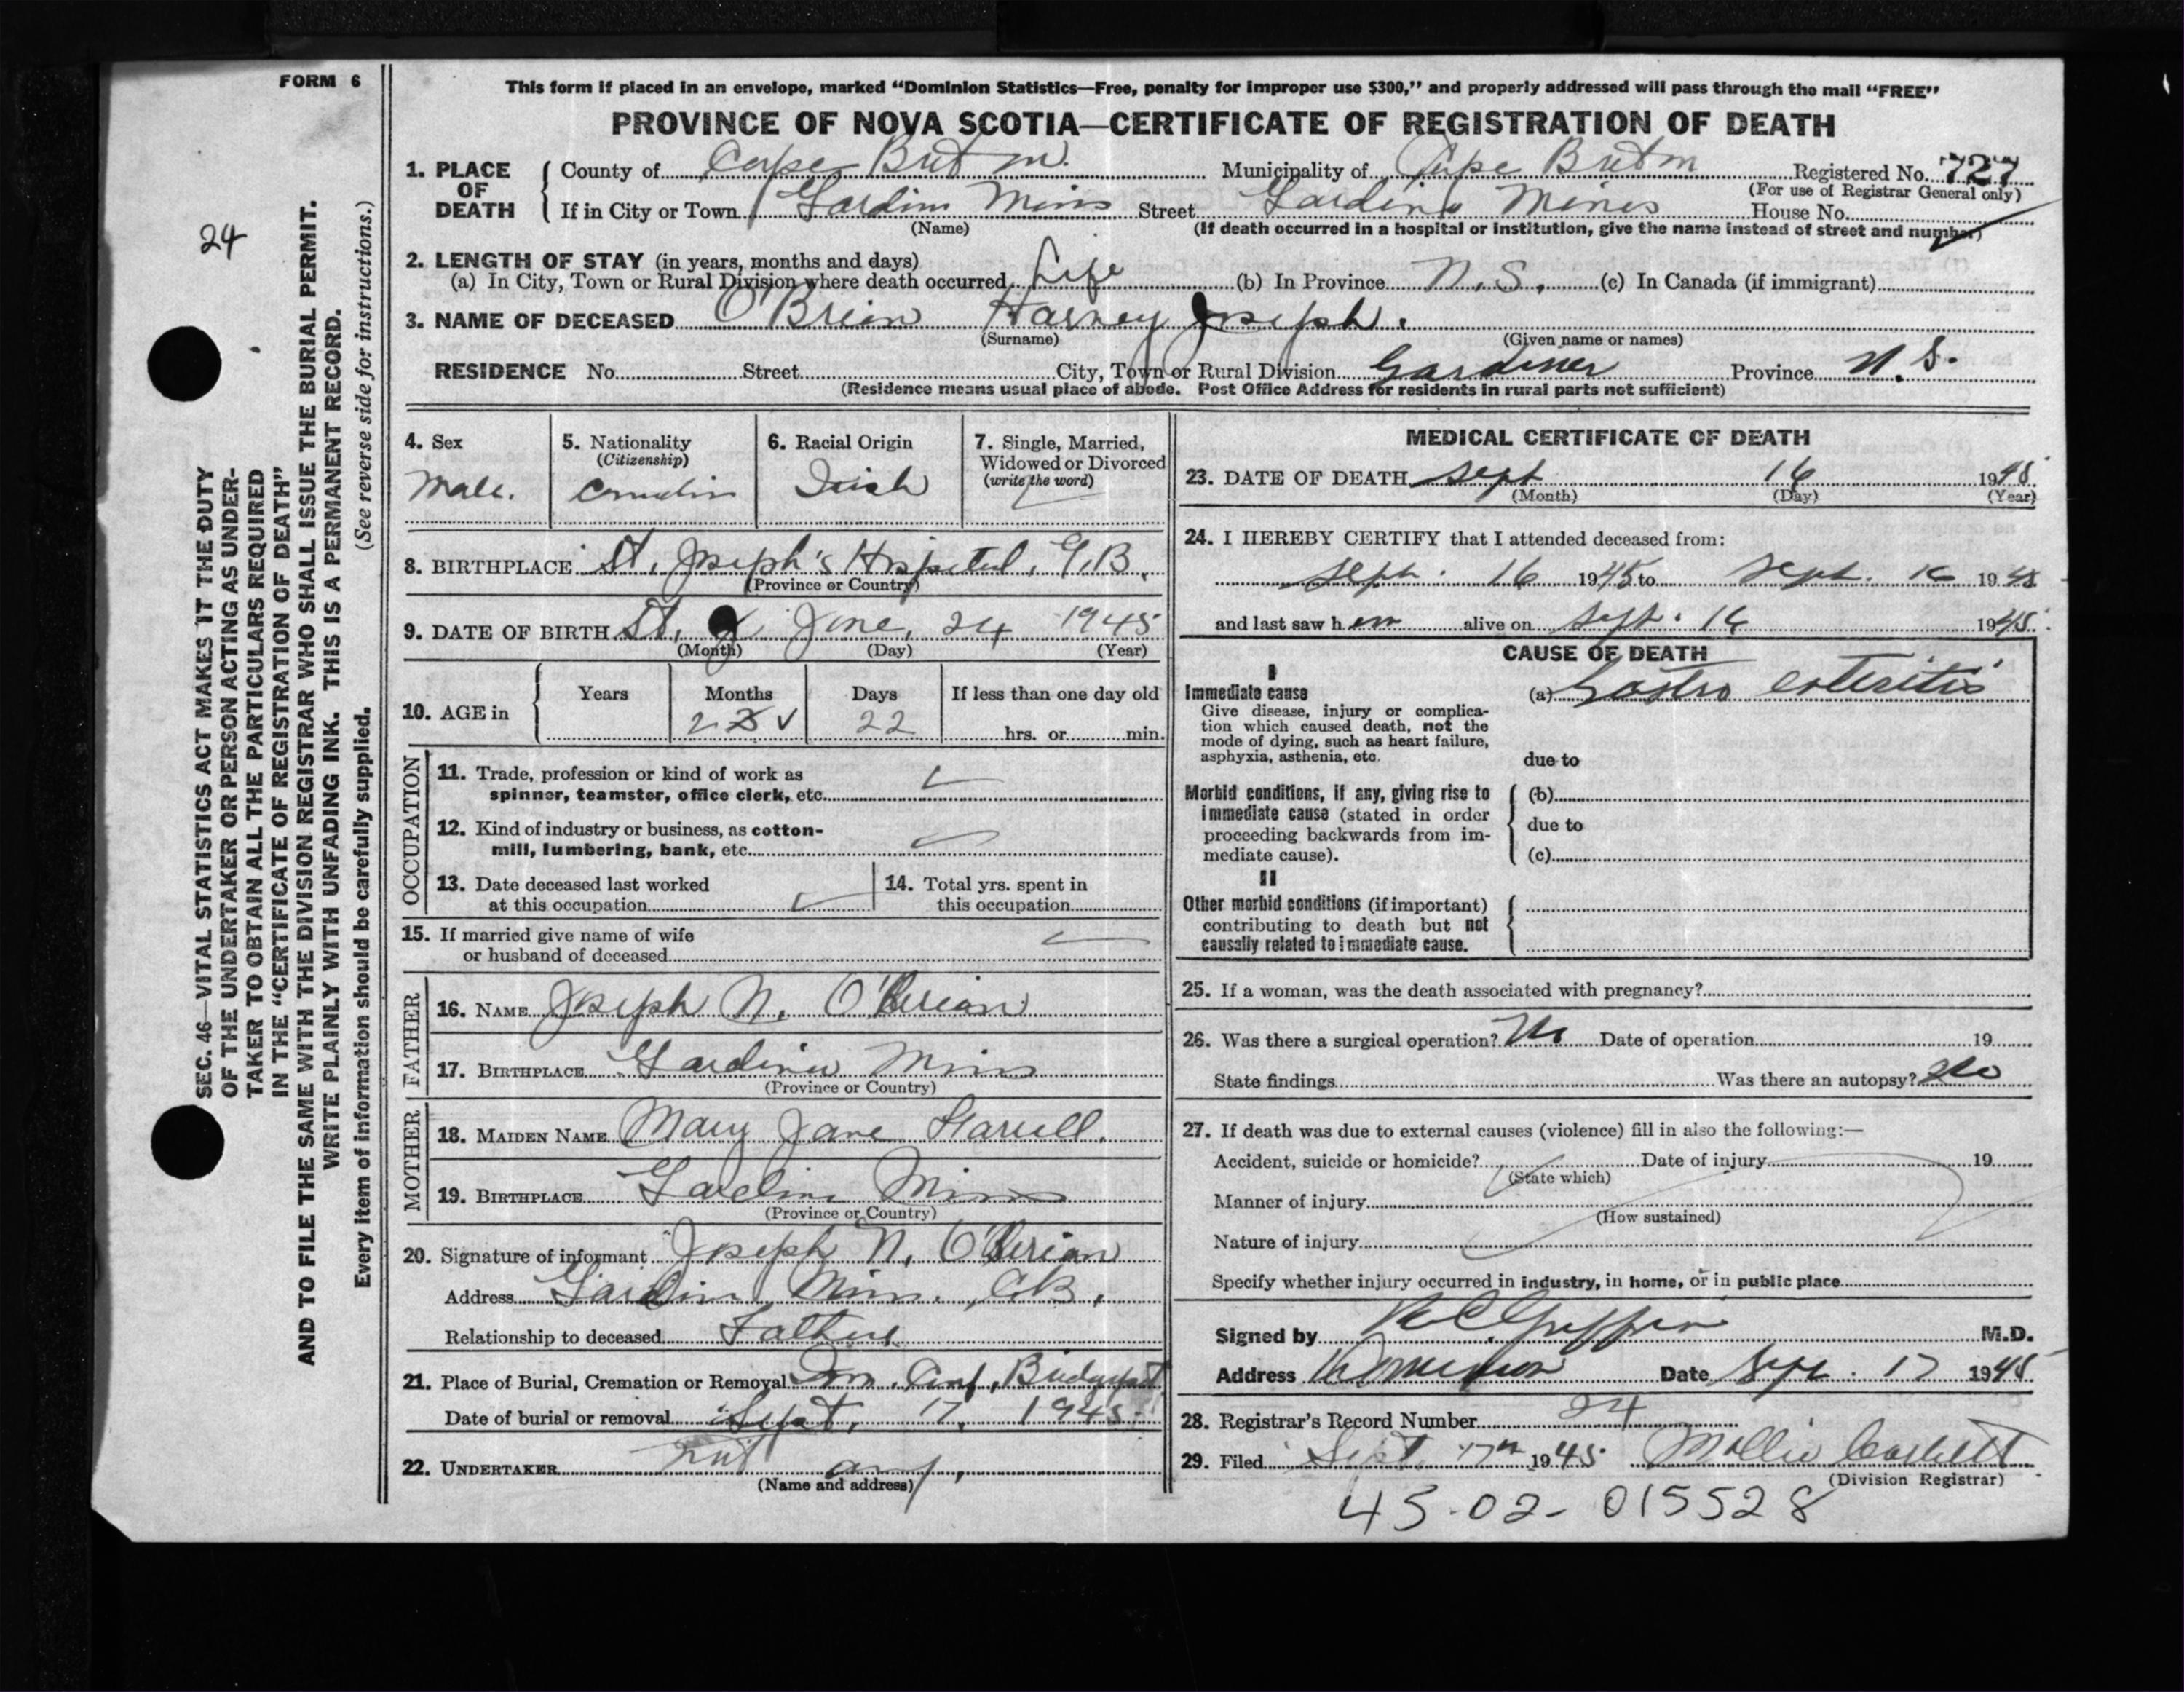 FORM 6
This form if placed in an envelope, marked “Dominion Statistics—Free, penalty for improper use $300,” and properly addressed will pass through the mail “FREE”
PROVINCE OF NOVA SCOTIA—CERTIFICATE OF REGISTRATION OF DEATH
24
SEC. 46—VITAL STATISTICS ACT MAKES IT THE DUTY
OF THE UNDERTAKER OR PERSON ACTING AS UNDER-
TAKER TO OBTAIN ALL THE PARTICULARS REQUIRED
IN THE “CERTIFICATE OF REGISTRATION OF DEATH”
AND TO FILE THE SAME WITH THE DIVISION REGISTRAR WHO SHALL ISSUE THE BURIAL PERMIT.
WRITE PLAINLY WITH UNFADING INK. THIS IS A PERMANENT RECORD.
Every item of information should be carefully supplied. (See reverse side for instructions.)
1. PLACE OF DEATH
County of Cape Breton Municipality of Cape Breton Registered No. 727
(For use of Registrar General only)
If in City or Town Gardiner Mines Street Gardiner Mines House No.
(Name) (If death occurred in a hospital or institution, give the name instead of street and number)
2. LENGTH OF STAY (in years, months and days)
(a) In City, Town or Rural Division where death occurred Life (b) In Province N.S. (c) In Canada (if immigrant)
3. NAME OF DECEASED O'Brien Harvey Joseph.
(Surname) (Given name or names)
RESIDENCE No. Street City, Town or Rural Division Gardiner Province N.S.
(Residence means usual place of abode. Post Office Address for residents in rural parts not sufficient)
4. Sex
Male.
5. Nationality
(Citizenship)
Canadian
6. Racial Origin
Irish
7. Single, Married,
Widowed or Divorced
(write the word)
8. BIRTHPLACE St. Joseph's Hospital, G.B.
(Province or Country)
9. DATE OF BIRTH St. June, 24 1945
(Month) (Day) (Year)
10. AGE in Years Months Days If less than one day old
2 22 hrs. or min.
OCCUPATION
11. Trade, profession or kind of work as
spinner, teamster, office clerk, etc.
12. Kind of industry or business, as cotton-
mill, lumbering, bank, etc.
13. Date deceased last worked
at this occupation
14. Total yrs. spent in
this occupation
15. If married give name of wife
or husband of deceased
FATHER
16. NAME Joseph N. O'Brian
17. BIRTHPLACE Gardiner Mines
(Province or Country)
MOTHER
18. MAIDEN NAME Mary Jane
19. BIRTHPLACE Gardiner Mines
(Province or Country)
20. Signature of informant Joseph N. O'Brian
Address Gardiner Mines, C.B.
Relationship to deceased Father
21. Place of Burial, Cremation or Removal Bridgeport
Date of burial or removal Sept. 17, 1945
22. UNDERTAKER not any,
(Name and address)
MEDICAL CERTIFICATE OF DEATH
23. DATE OF DEATH Sept 16 1945
(Month) (Day) (Year)
24. I HEREBY CERTIFY that I attended deceased from:
Sept. 16 1945 to Sept. 16 1945
and last saw h im alive on Sept. 16 1945.
CAUSE OF DEATH
I
Immediate cause
Give disease, injury or complica-
tion which caused death, not the
mode of dying, such as heart failure,
asphyxia, asthenia, etc.
(a) Gastro enteritis
due to
Morbid conditions, if any, giving rise to
immediate cause (stated in order
proceeding backwards from im-
mediate cause).
(b)
due to
(c)
II
Other morbid conditions (if important)
contributing to death but not
causally related to immediate cause.
25. If a woman, was the death associated with pregnancy?
26. Was there a surgical operation? No Date of operation 19
State findings Was there an autopsy? No
27. If death was due to external causes (violence) fill in also the following:—
Accident, suicide or homicide? Date of injury 19
(State which)
Manner of injury
(How sustained)
Nature of injury
Specify whether injury occurred in industry, in home, or in public place
Signed by Griffin M.D.
Address Dominion Date Sept. 17 1945
28. Registrar's Record Number 24
29. Filed Sept. 17th 1945 Mollie
(Division Registrar)
45-02-015528